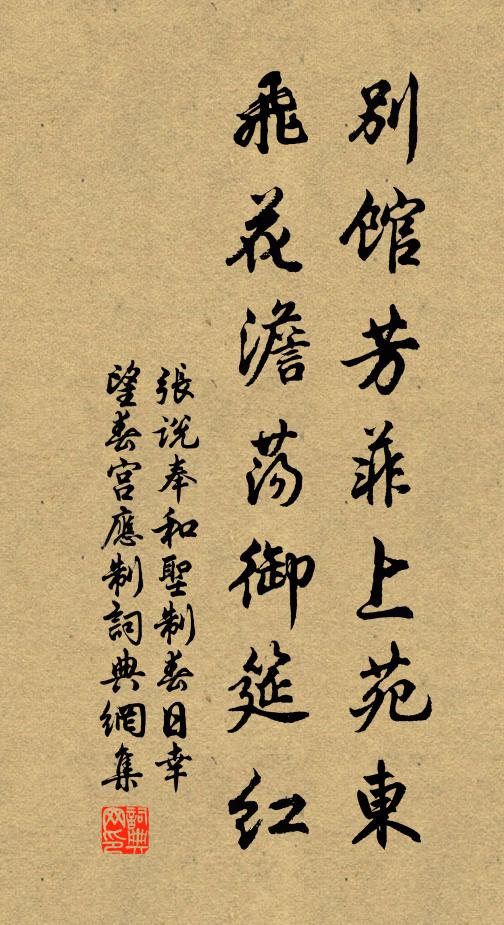 別館芳菲上苑東
飛花澹蕩御筵紅
張說奉和聖制春日幸
望春宮應制詞典網集
詞典
网印